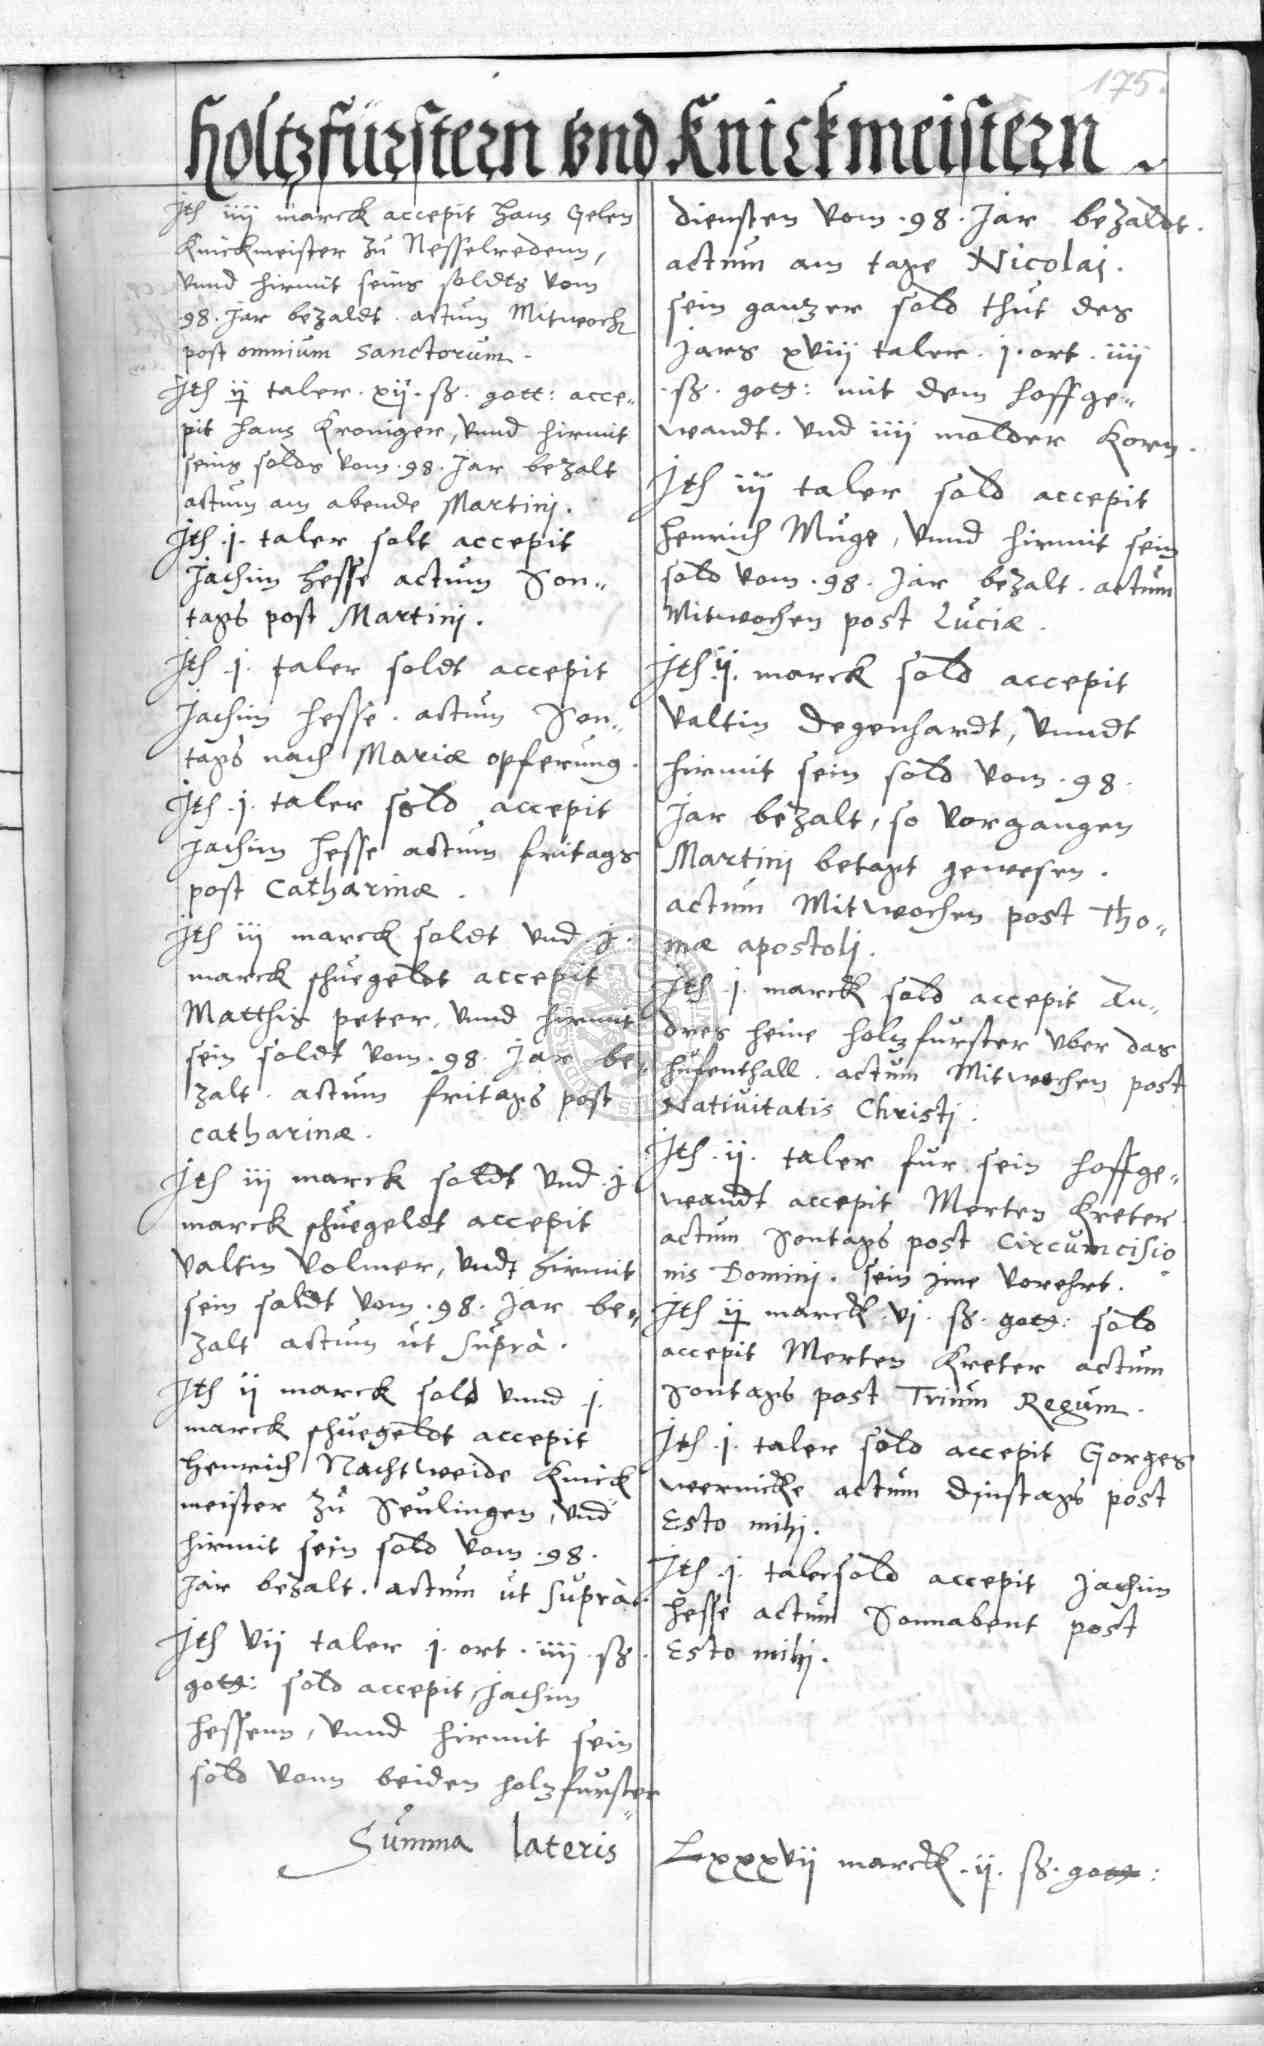 175.
Holtzfürstern vnd Knickmeistern
Jtß iiij marck accepit Hans Gelen
Knickmeister zu Nesselredenn,
vnnd hirmit seins soldts vom
98. Jar bezaldt. actum Mitwoch
post omnium sanctorum.
Jtß ij taler. xij. sz. gott: acce„
pit Hans Kroniger, vnnd hirmit
seins solds vom. 98. Jar bezalt
actum am abende Martinj.
Jtß .j. taler solt accepit
Jachim Hesse actum Son„
tags post Martinj.
Jtß .j. taler soldt accepit
Jachim Hesse. actum Son„
tags nach Mariæ opferung.
Jtß .j. taler sold accepit
Jachim Hesse actum fritags
post Catharinæ.
Jtß iij marck soldt vnd j.
marck schuegeldt accepit
Matthis Peter, vnnd hirmit
sein soldt vom. 98. Jar be„
zalt. actum fritags post
Catharinæ.
Jtß iij marck soldt vnd .j
marck schuegeldt accepit
Valtin Volmer, vndt hirmit
sein soldt vom. 98. Jar be„
zalt actum ut suprà.
Jtß ij marck sold vnnd .j.
marck schuegeldt accepit
Henrich Nachtweide Knick
meister zu Seulingen, vnd
hirmit sein sold vom. 98.
Jar bezalt. actum ut suprà.
Jtß vij taler j. ort. iiij. sz.
gott: sold accepit Jachim
Hessenn, vnnd hirmit sein
sold vonn beiden holzfurster„
Summa lateris
diensten vom. 98. Jar bezaldt.
actum am tage Nicolaj.
sein gantzer sold thut des
Jars xviij taler. j. ort. iiij
. sz. gott: mit dem hoffge„
wandt. vnd iiij molder Korn.
Jtß iij taler sold accepit
Henrich Muge, vnnd hirmit sein
sold vom. 98. Jar bezalt. actum
Mitwochen post Luciæ.
Jtß .ij. marck sold accepit
Valtin Degenhardt, vnndt
hirmit sein sold vom. 98.
Jar bezalt, so vorgangen
Martinj betagt gewesen.
actum Mitwochen post Tho„
mæ apostolj.
Jtß .j. marck sold accepit An„
dres Heine holzfurster vber das
Hufenthall. actum Mitwochen post
Nativitatis Christj.
Jtß .ij. taler fur sein hoffge„
wandt accepit Merten Kreter
actum Sontags post Circumcisio
nis Dominj. sein jme vorehrt.
Jtß ij marck. vj. sz. gott: sold
accepit Merten Kreter actum
Sontags post Trium Regum.
Jtß .j. taler sold accepit Gorges
Wernicke actum Dinstags post
Esto mihj.
Jtß .j. taler sold accepit Jachim
Hesse actum Sonnabent post
Esto mihj.
Lxxxvij marck. ij. sz. gott: